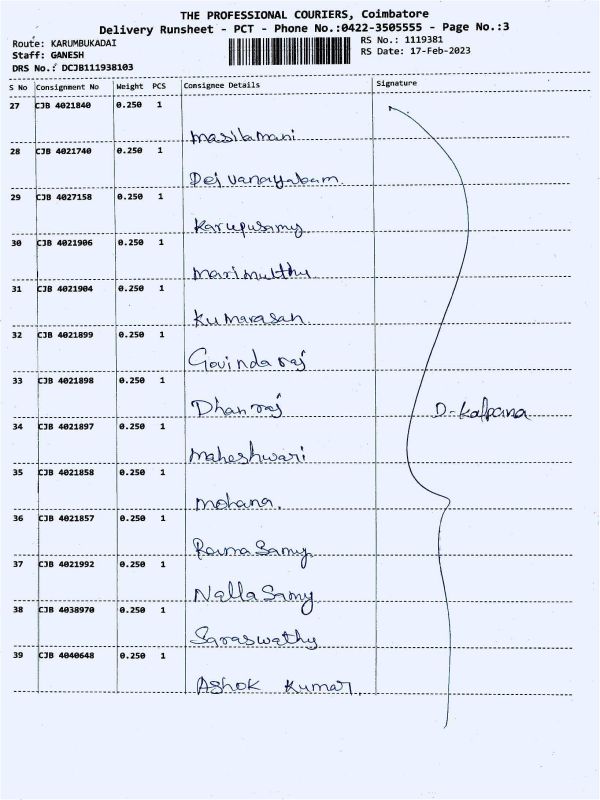 THE PROFESSIONAL COURIERS, Coimbatore
Delivery Runsheet - PCT - Phone No.:0422-3505555 - Page No.:3
Route: KARUMBUKADAI
RS No.: 1119381
Staff: GANESH
RS Date: 17-Feb-2023
DRS No.: DCJB111938103
S No Consignment No Weight PCS Consignee Details Signature
27 CJB 4021840 0.250 1
Masilamani
28 CJB 4021740 0.250 1
Deivanayabam
29 CJB 4027158 0.250 1
Karupusamy
30 CJB 4021906 0.250 1
Marimutthu
31 CJB 4021904 0.250 1
Kumarasan
32 CJB 4021899 0.250 1
Govinda raj
33 CJB 4021898 0.250 1
Dhan raj
D-Kalpana
34 CJB 4021897 0.250 1
Maheshwari
35 CJB 4021858 0.250 1
Mohana.
36 CJB 4021857 0.250 1
Rama Samy
37 CJB 4021992 0.250 1
Nalla Samy
38 CJB 4038970 0.250 1
Saraswathy
39 CJB 4040648 0.250 1
Ashok Kumar